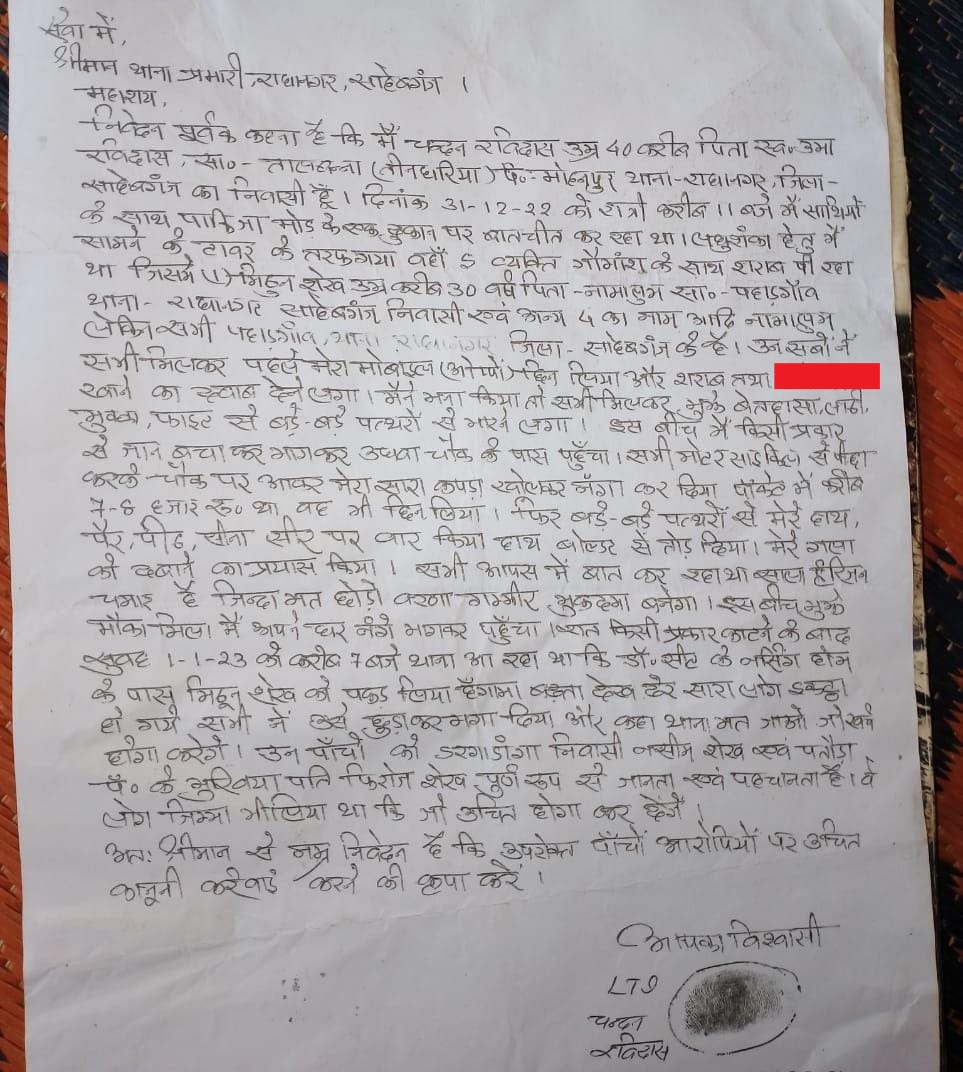 सेवा में,
श्रीमान थाना प्रभारी, राधानगर, साहेबगंज ।
महाशय,
निवेदन पूर्वक कहना है कि मैं चन्दन रविदास उम्र 40 करीब पिता स्व० उमा
रविदास, सा०- तालबन्ना (तीनधरिया) पो०- मोहनपुर थाना-राधानगर, जिला-
साहेबगंज का निवासी हूँ। दिनांक 31-12-22 को रात्री करीब 11 बजे मैं साथियों
के साथ पाकिजा मोड़ के एक दुकान पर बातचीत कर रहा था। लघुशंका हेतु मैं
सामने के टावर के तरफ गया वहाँ 5 व्यक्ति गौमांश के साथ शराब पी रहा
था जिसमें (1) मिठुन शेख उम्र करीब 30 वर्ष पिता-नामालुम सा०- पहाड़गाँव
थाना- राधानगर साहेबगंज निवासी एवं अन्य 4 का नाम आदि नामालुम
लेकिन सभी पहाड़गाँव, थाना राधानगर जिला- साहेबगंज के है। उन सबों ने
सभी मिलकर पहले मेरा मोबाइल (ओप्पो) छिन लिया और शराब तथा
खाने का दवाब देने लगा। मैंने मना किया तो सभी मिलकर मुझे बेतहासा, लाठी,
मुक्का, फाइट से बड़े-बड़े पत्थरों से मारने लगा। इस बीच मैं किसी प्रकार
से जान बचाकर भागकर उधवा चौक के पास पहुँचा। सभी मोटर साइकिल से पीछा
करके चौक पर आकर मेरा सारा कपड़ा खोलकर नँगा कर दिया पॉकेट में करीब
7-8 हजार रू० था, वह भी छिन लिया। फिर बड़े-बड़े पत्थरों से मेरे हाथ,
पैर, पीठ, सीना सीर पर वार किया हाथ बोल्डर से तोड़ दिया। मेरे गला
को दबाने का प्रयास किया। सभी आपस में बात कर रहा था साला हरिजन
चमार है जिन्दा मत छोड़ो वरना गम्भीर मुकदमा बनेगा। इस बीच मुझे
मौका मिला मैं अपने घर नँगे भागकर पहुँचा। रात किसी प्रकार काटने के बाद
सुबह 1-1-23 को करीब 7 बजे थाना आ रहा था कि डॉ० सील के नर्सिंग होम
के पास मिठुन शेख को पकड़ लिया हँगामा बढ़ता देख ढेर सारा लोग इकट्ठा
हो गये सभी ने उसे छुड़ाकर भगा दिया और कहा थाना मत जाओ जो खर्च
होगा करेंगे। उन पाँचों को दरगाडाँगा निवासी नसीम शेख एवं पतौड़ा
पं० के मुखिया पति फिरोज शेख पूर्ण रूप से जानता एवं पहचानता है। वे
लोग जिम्मा भी लिया था कि जो उचित होगा कर देंगें।
अतः श्रीमान से नम्र निवेदन है कि उपरोक्त पाँचों आरोपियों पर उचित
कानूनी करेवाई करने की कृपा करें।
आपका विश्वासी
LTI
चन्दन
रविदास